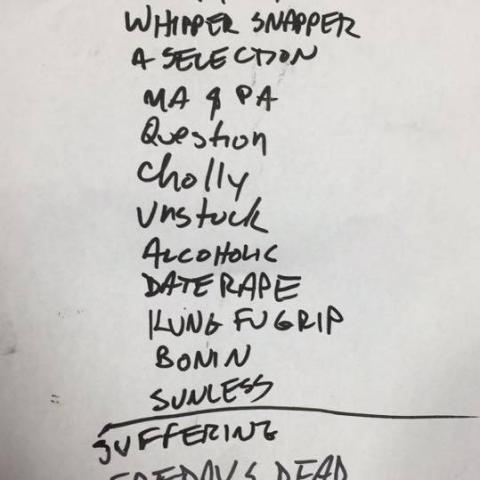 WHIPPER SNAPPER
A SELECTION
MA & PA
Question
Cholly
Unstuck
ALCOHOLIC
DATE RAPE
KUNG FU GRIP
BONIN
SUNLESS
SUFFERING
FREDDY'S DEAD